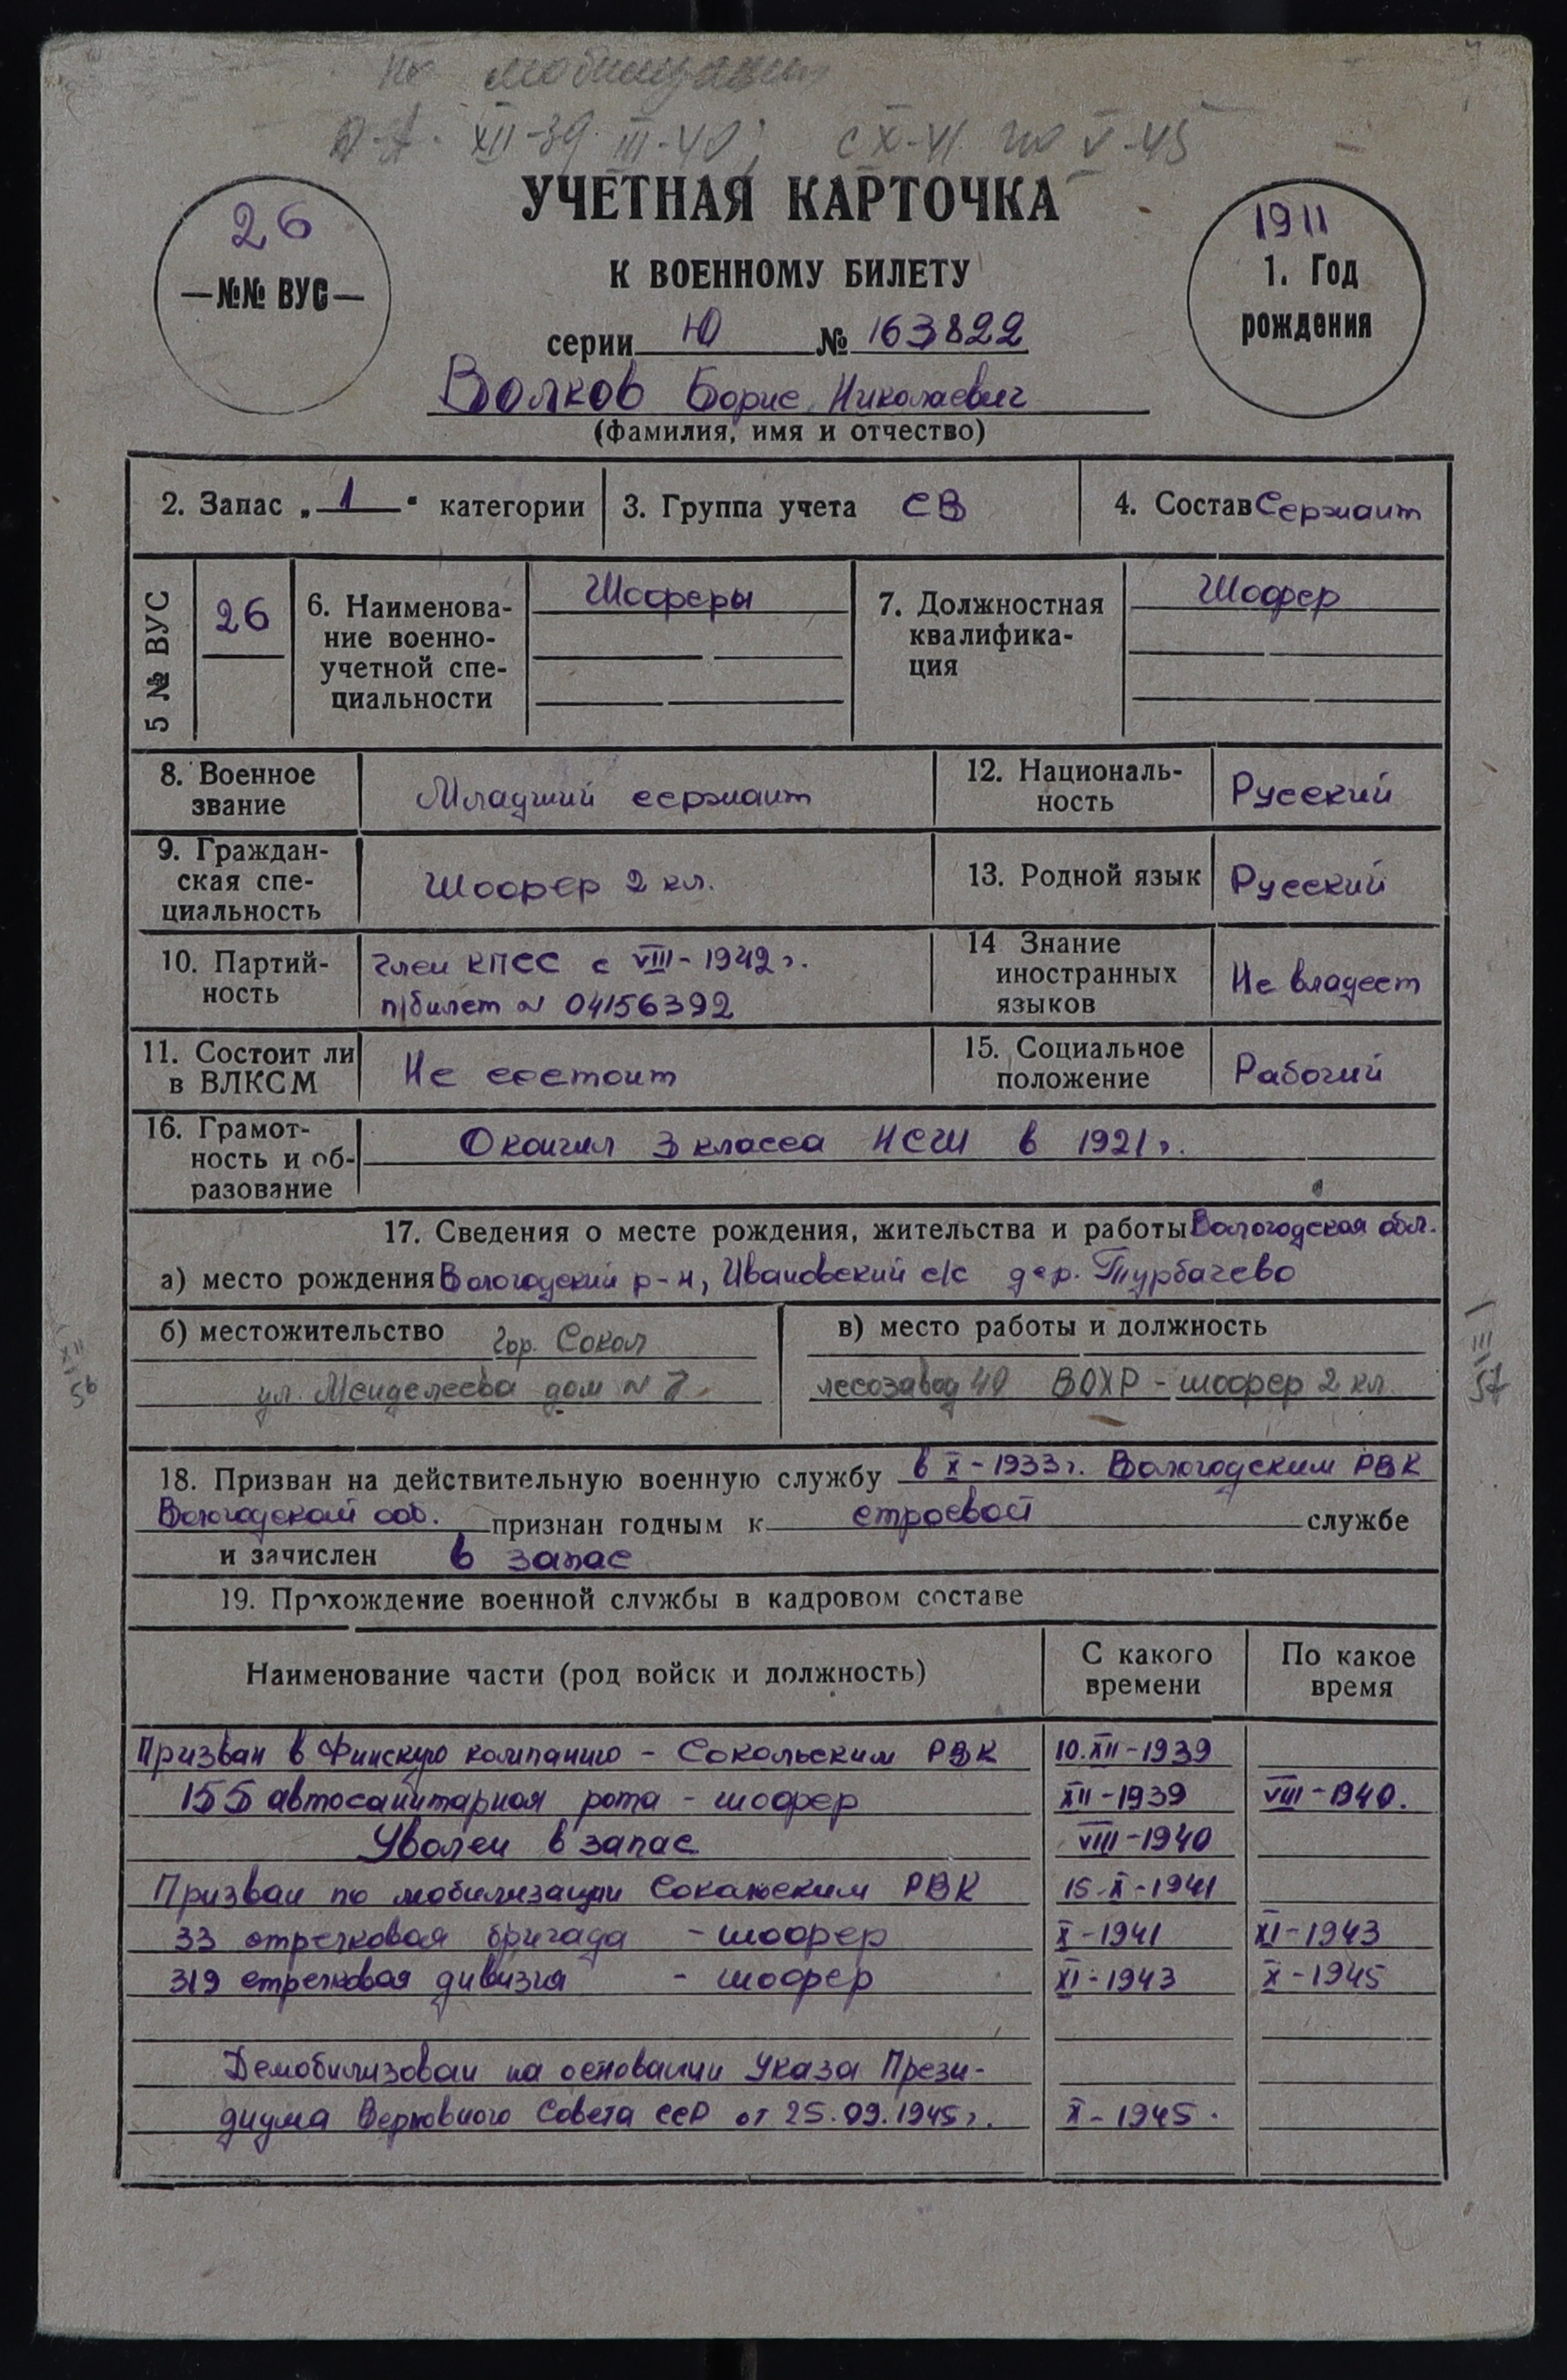 По мобилизации
XII-39 III-40; с X-41 по V-45
УЧЕТНАЯ КАРТОЧКА
К ВОЕННОМУ БИЛЕТУ
26
—№№ ВУС—
1911
1. Год
рождения
серии Ю № 163822
Волков Борис Николаевич
(фамилия, имя и отчество)
2. Запас „1“ категории 3. Группа учета СВ 4. Состав Сержант
5 № ВУС 26
6. Наименова-
ние военно-
учетной спе-
циальности
Шоферы
7. Должностная
квалифика-
ция
Шофер
8. Военное
звание
Младший сержант
12. Националь-
ность
Русский
9. Граждан-
ская спе-
циальность
Шофер 2 кл.
13. Родной язык Русский
10. Партий-
ность
Член КПСС с VIII-1942 г.
п/билет № 04156392
14 Знание
иностранных
языков
Не владеет
11. Состоит ли
в ВЛКСМ
Не состоит
15. Социальное
положение
Рабочий
16. Грамот-
ность и об-
разование
Окончил 3 класса НСШ в 1921 г.
17. Сведения о месте рождения, жительства и работы Вологодская обл.
а) место рождения Вологодский р-н, Ивановский с/с дер. Турбачево
б) местожительство гор. Сокол
ул. Менделеева дом № 7
в) место работы и должность
лесозавод 40 ВОХР - шофер 2 кл
XII
56
III
57
18. Призван на действительную военную службу в X-1933 г. Вологодским РВК
Вологодской обл. признан годным к строевой службе
и зачислен в запас
19. Прохождение военной службы в кадровом составе
Наименование части (род войск и должность)
С какого
времени
По какое
время
Призван в Финскую компанию - Сокольским РВК 10.XII-1939
155 автосанитарная рота - шофер XII-1939 VIII-1940.
Уволен в запас VIII-1940
Призван по мобилизации Сокольским РВК 15-X-1941
33 стрелковая бригада - шофер X-1941 XI-1943
319 стрелковая дивизия - шофер XI-1943 X-1945
Демобилизован на основании Указа Прези-
диума Верховного Совета СССР от 25.09.1945 г. X-1945.